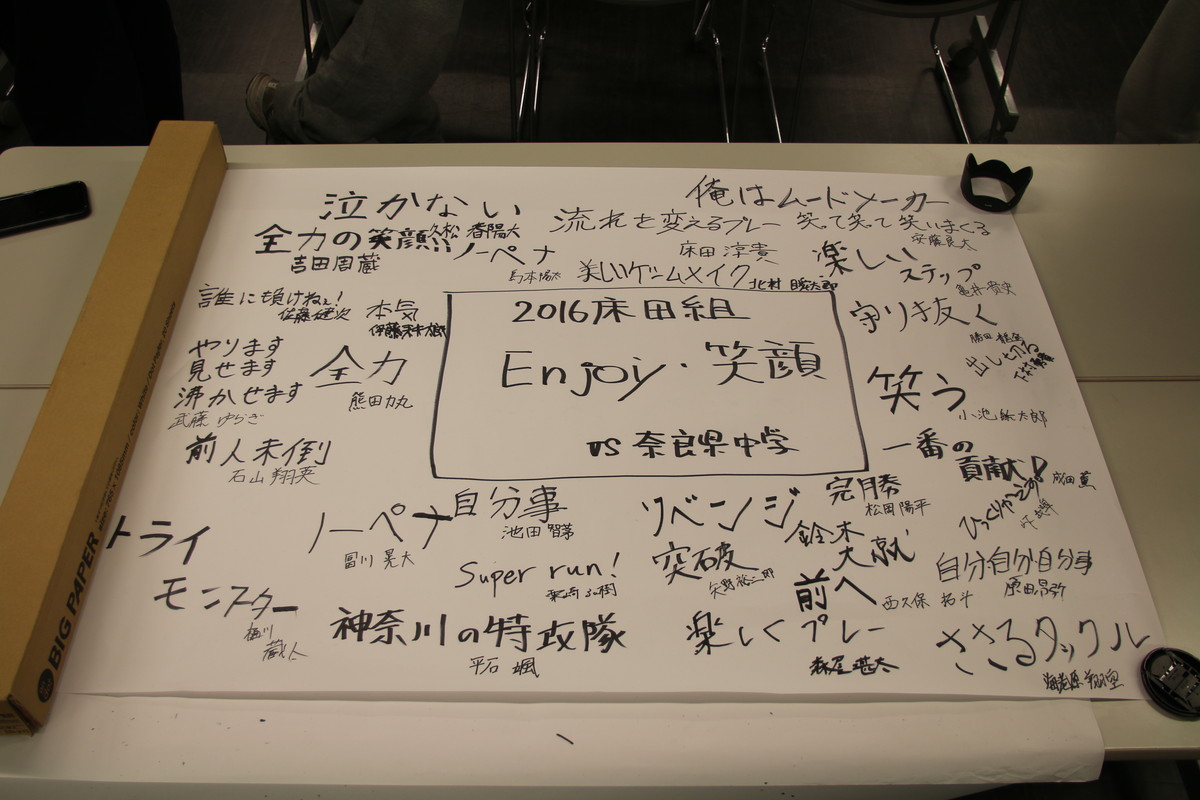 泣かない
俺はムードメーカー
全力の笑顔!!
久松 春陽太
流れを変えるプレー
笑って笑って笑いまくる
吉田周蔵
ノーペナ
床田 淳貴
安藤良太
楽しい
美しいゲームメイク
北村
ステップ
誰に負けねぇ!
佐藤健次
本気
2016床田組
守り抜く
やります
見せます
沸かせます
武藤 ゆらぎ
全力
熊田力丸
Enjoy・笑顔
笑う
小池
前人未倒
石山 翔英
VS 奈良県中学
一番の
貢献犬!
成田 薫
自分事
池田 智茅
リベンジ
完月券
松岡 陽平
トライ
ノーペナ
冨川 晃大
鈴木
大就
Super run!
突破
自分自分自分事
原田
モンスター
前へ
西久保 拓斗
神奈川の特攻隊
平石 颯
楽しくプレー
森屋
ささるタックル
海老原
BIG PAPER